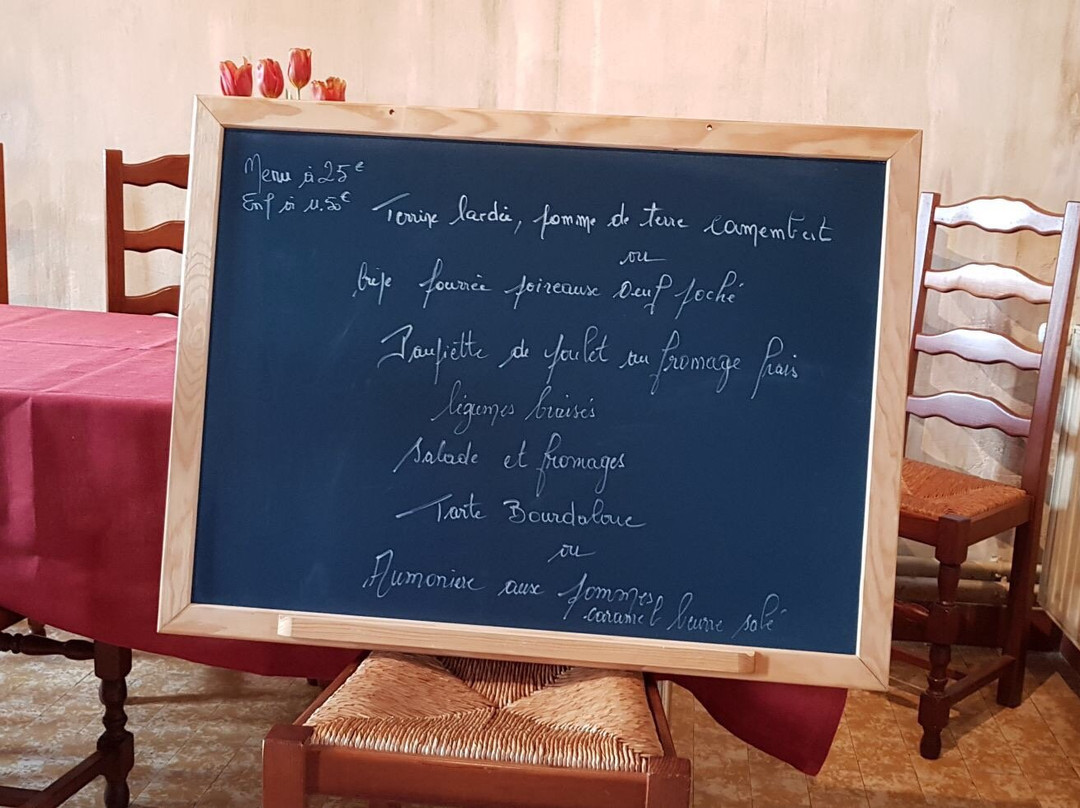 Menu à 25€
Enf à 11.50€
Terrine lardée, pomme de terre camembert
ou
Crêpe fourrée poireaux Oeuf poché
Paupiette de poulet au fromage frais
légumes braisés
Salade et fromages
Tarte Bourdaloue
ou
Aumonière aux pommes
caramel beurre salé